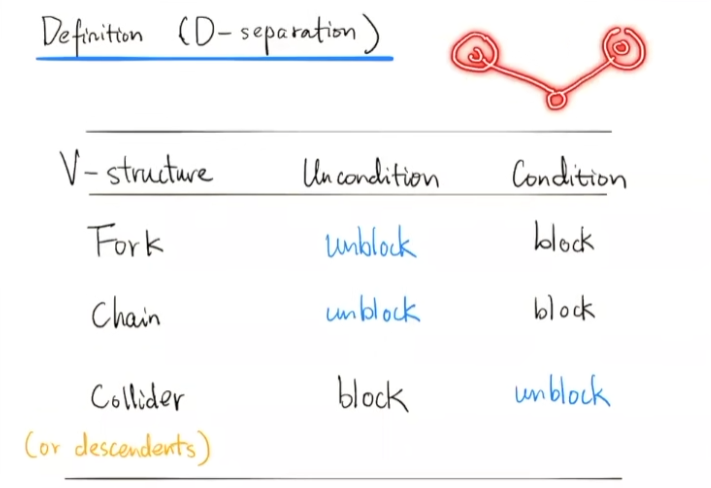 Definition (D-separation)
V-structure Uncondition Condition
Fork unblock block
Chain unblock block
Collider block unblock
(or descendents)